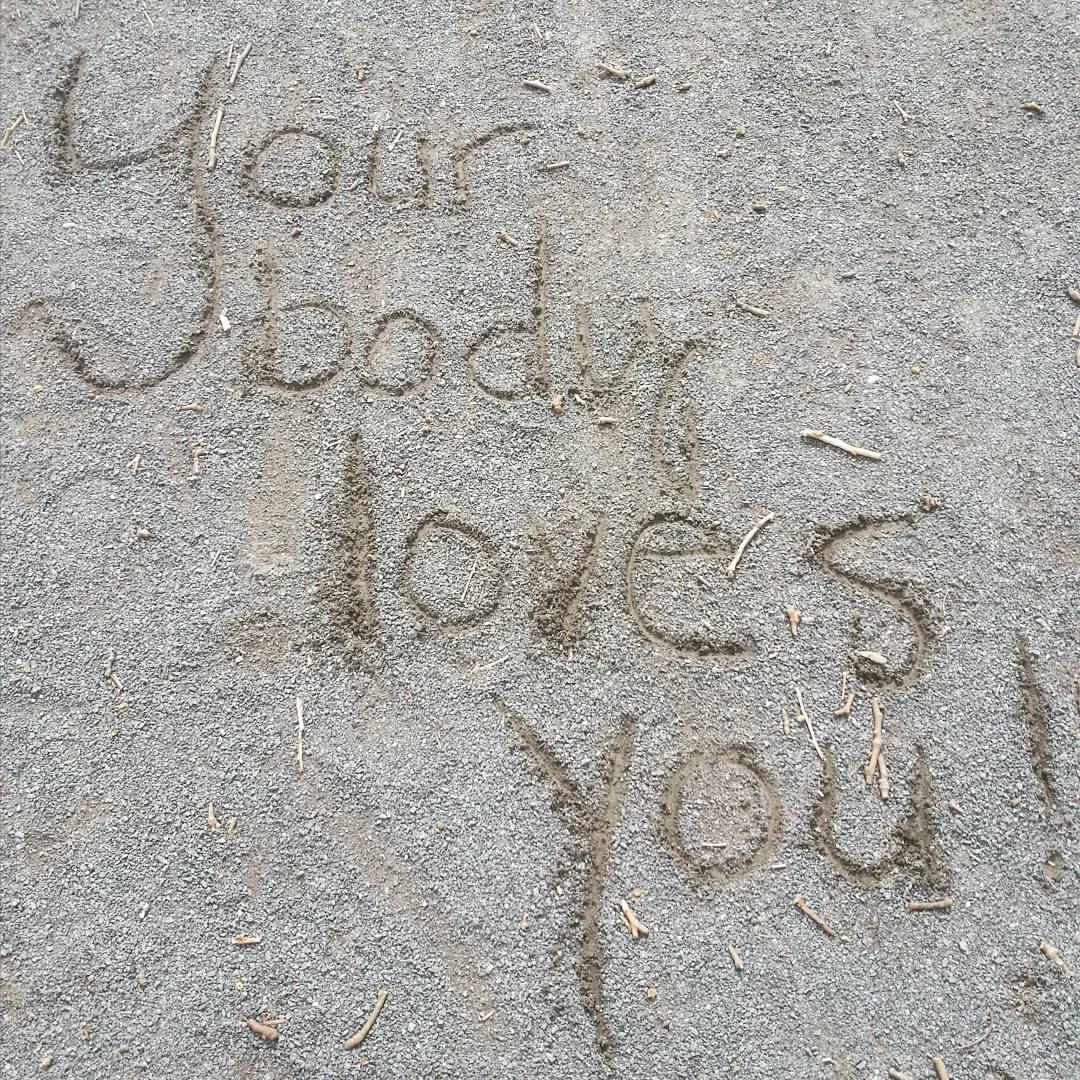 Your
body
loves
you!